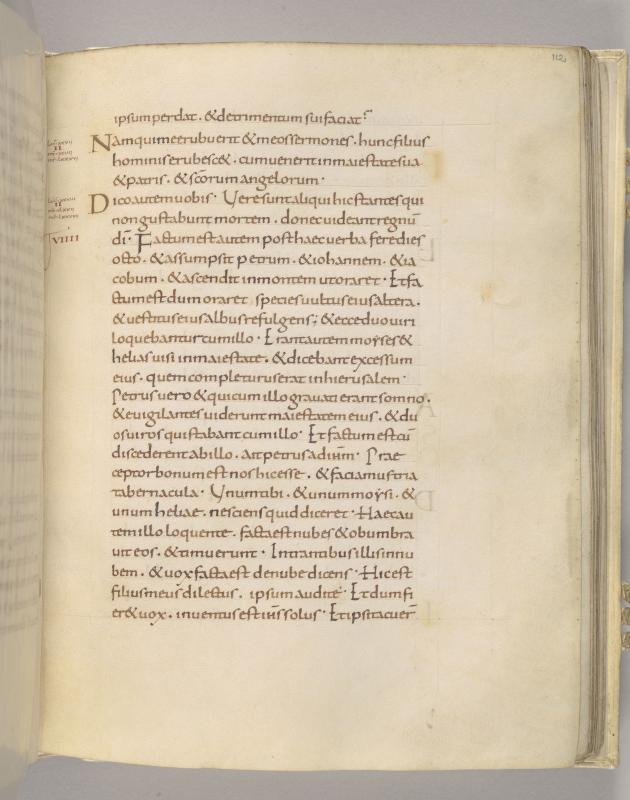 112
ipsum perdat. & detrimentum sui faciat
Nam qui me erubuerit & meos sermones. hunc filius
hominis erubesc&. cum uenerit in maiestate sua
& patris. & sc̄orum angelorum.
Dico autem uobis. Vere sunt aliqui hic stantes qui
non gustabunt mortem. donec uideant regnū
dī. Factum est autem post haec uerba fere dies
octo. & assumpsit petrum. & iohannem. & ia
cobum. & ascendit in montem ut oraret. Et fa
ctum est dum oraret species uultus eius altera.
& uestitus eius albus refulgens; & ecce duo uiri
loquebantur cum illo. Erant autem moyses &
helias uisi in maiestate. & dicebant excessum
eius. quem completurus erat in hierusalem.
Petrus uero & qui cum illo grauati erant somno.
& euigilantes uiderunt maiestatem eius. & du
os uiros qui stabant cum illo. Et factum est cū
discederent ab illo. ait petrus ad ihm̄. Prae
ceptor bonum est nos hic esse. & faciamus tria
tabernacula. Vnum tibi. & unum moysi. &
unum heliae. nesciens quid diceret. Haec au
tem illo loquente. facta est nubes & obumbra
uit eos. & timuerunt. Intrantibus illis in nu
bem. & uox facta est de nube dicens. Hic est
filius meus dilectus. ipsum audite. Et dum fi
er& uox. inuentus est ihs̄ solus. Et ipsi tacuer̄
VIIII